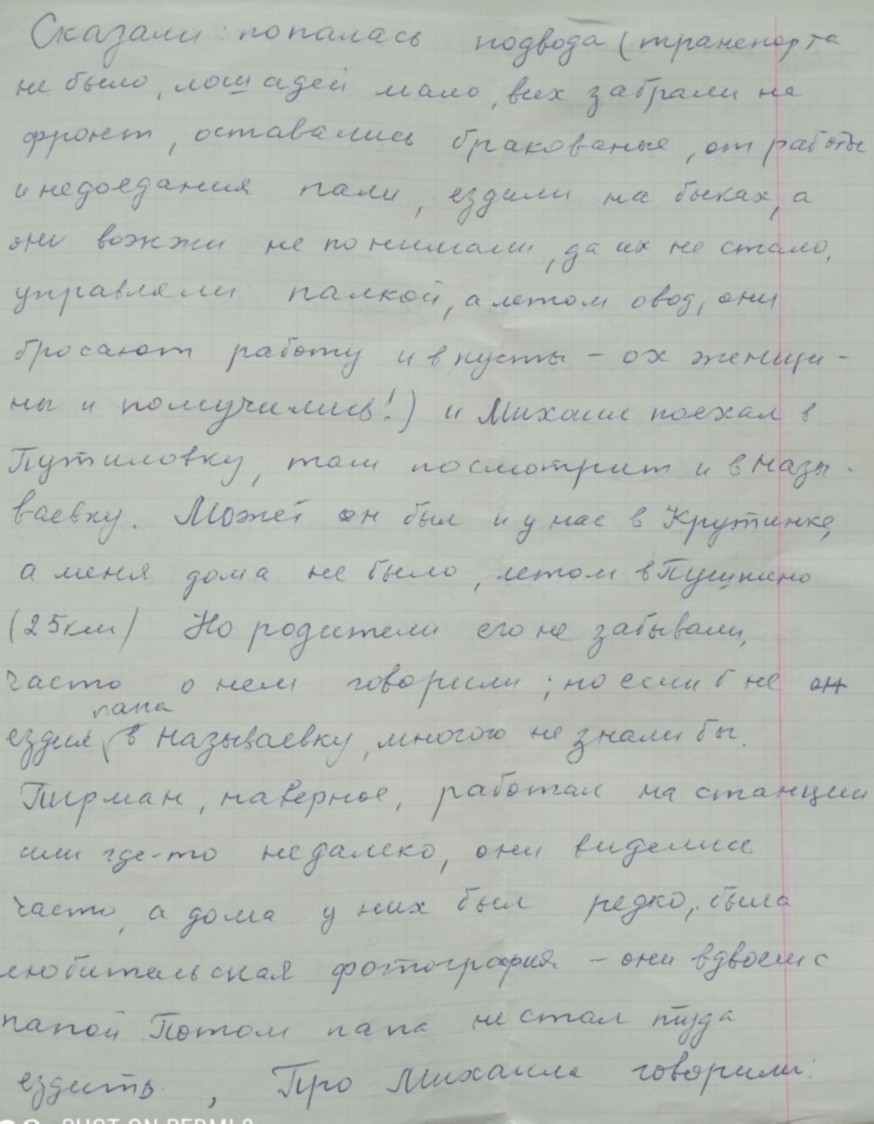 Сказали: попалась подвода (транспорта
не было, лошадей мало, всех забрали на
фронт, оставались бракованые, от работы
и недоедания пали, ездили на быках, а
они вожжи не понимали, да их не стало,
управляли палкой, а летом овод, они
бросают работу и в кусты – ох женщи-
ны и помучились!) и Михаил поехал в
Путиловку, там посмотрит и в Назы-
ваевку. Может он был и у нас в Крутинке,
а меня дома не было, летом в Пушкино
(25км) Но родители его не забывали,
часто о нем говорили; но если б не он
папа
ездил в Называевку, многого не знали бы.
Пирман, наверное, работал на станции
или где-то недалеко, они виделись
часто, а дома у них был редко, была
любительская фотография – они вдвоем с
папой Потом папа не стал туда
ездить. , Про Михаила говорили:
SHOT ON REDMI 8